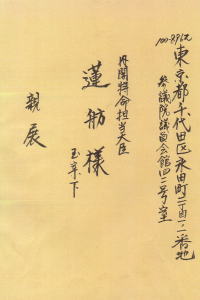 100-8962
東京都千代田区永田町二丁目一ー一番地
参議院議員会館四一二号室
内閣特命担当大臣
蓮舫様
玉案下
親展